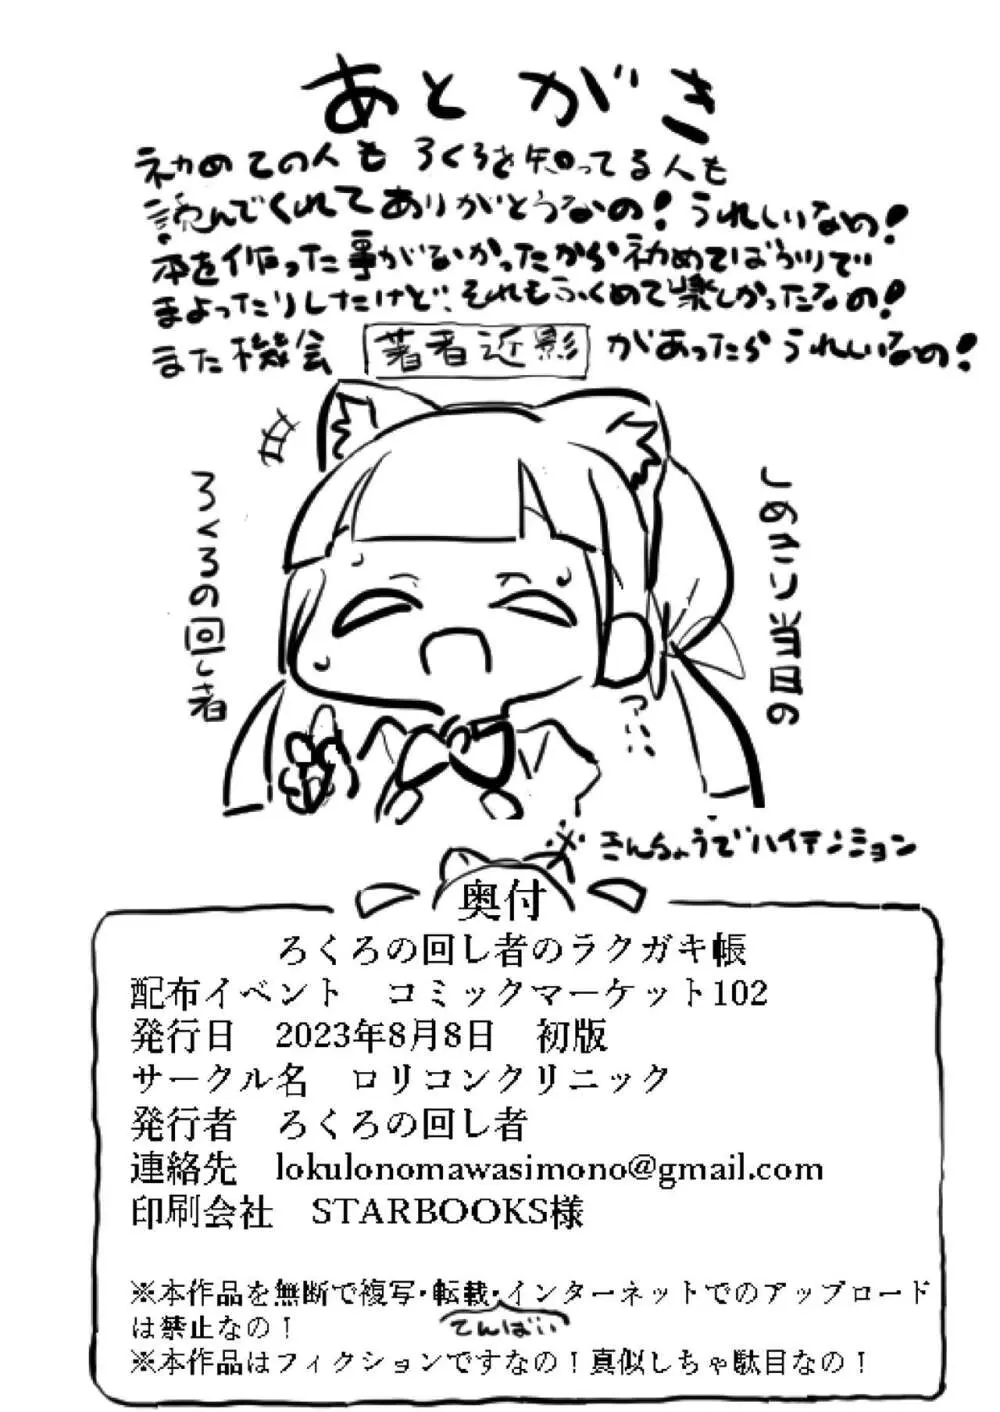 あとがき
初めての人も ろくろを知ってる人も
読んでくれてありがとうなの！うれしいなの！
本を作った事がなかったから初めてばかりで
まよったりしたけど、それもふくめて楽しかったなの！
また機会があったらうれしいなの！
著者近影
しめきり当日の
ろくろの回し者
※きんちょうでハイテンション
奥付
ろくろの回し者のラクガキ帳
配布イベント　コミックマーケット102
発行日　2023年8月8日　初版
サークル名　ロリコンクリニック
発行者　ろくろの回し者
連絡先　lokulonomawasimono@gmail.com
印刷会社　STARBOOKS様
※本作品を無断で複写・転載・インターネットでのアップロード
は禁止なの！
てんばい
※本作品はフィクションですなの！真似しちゃ駄目なの！